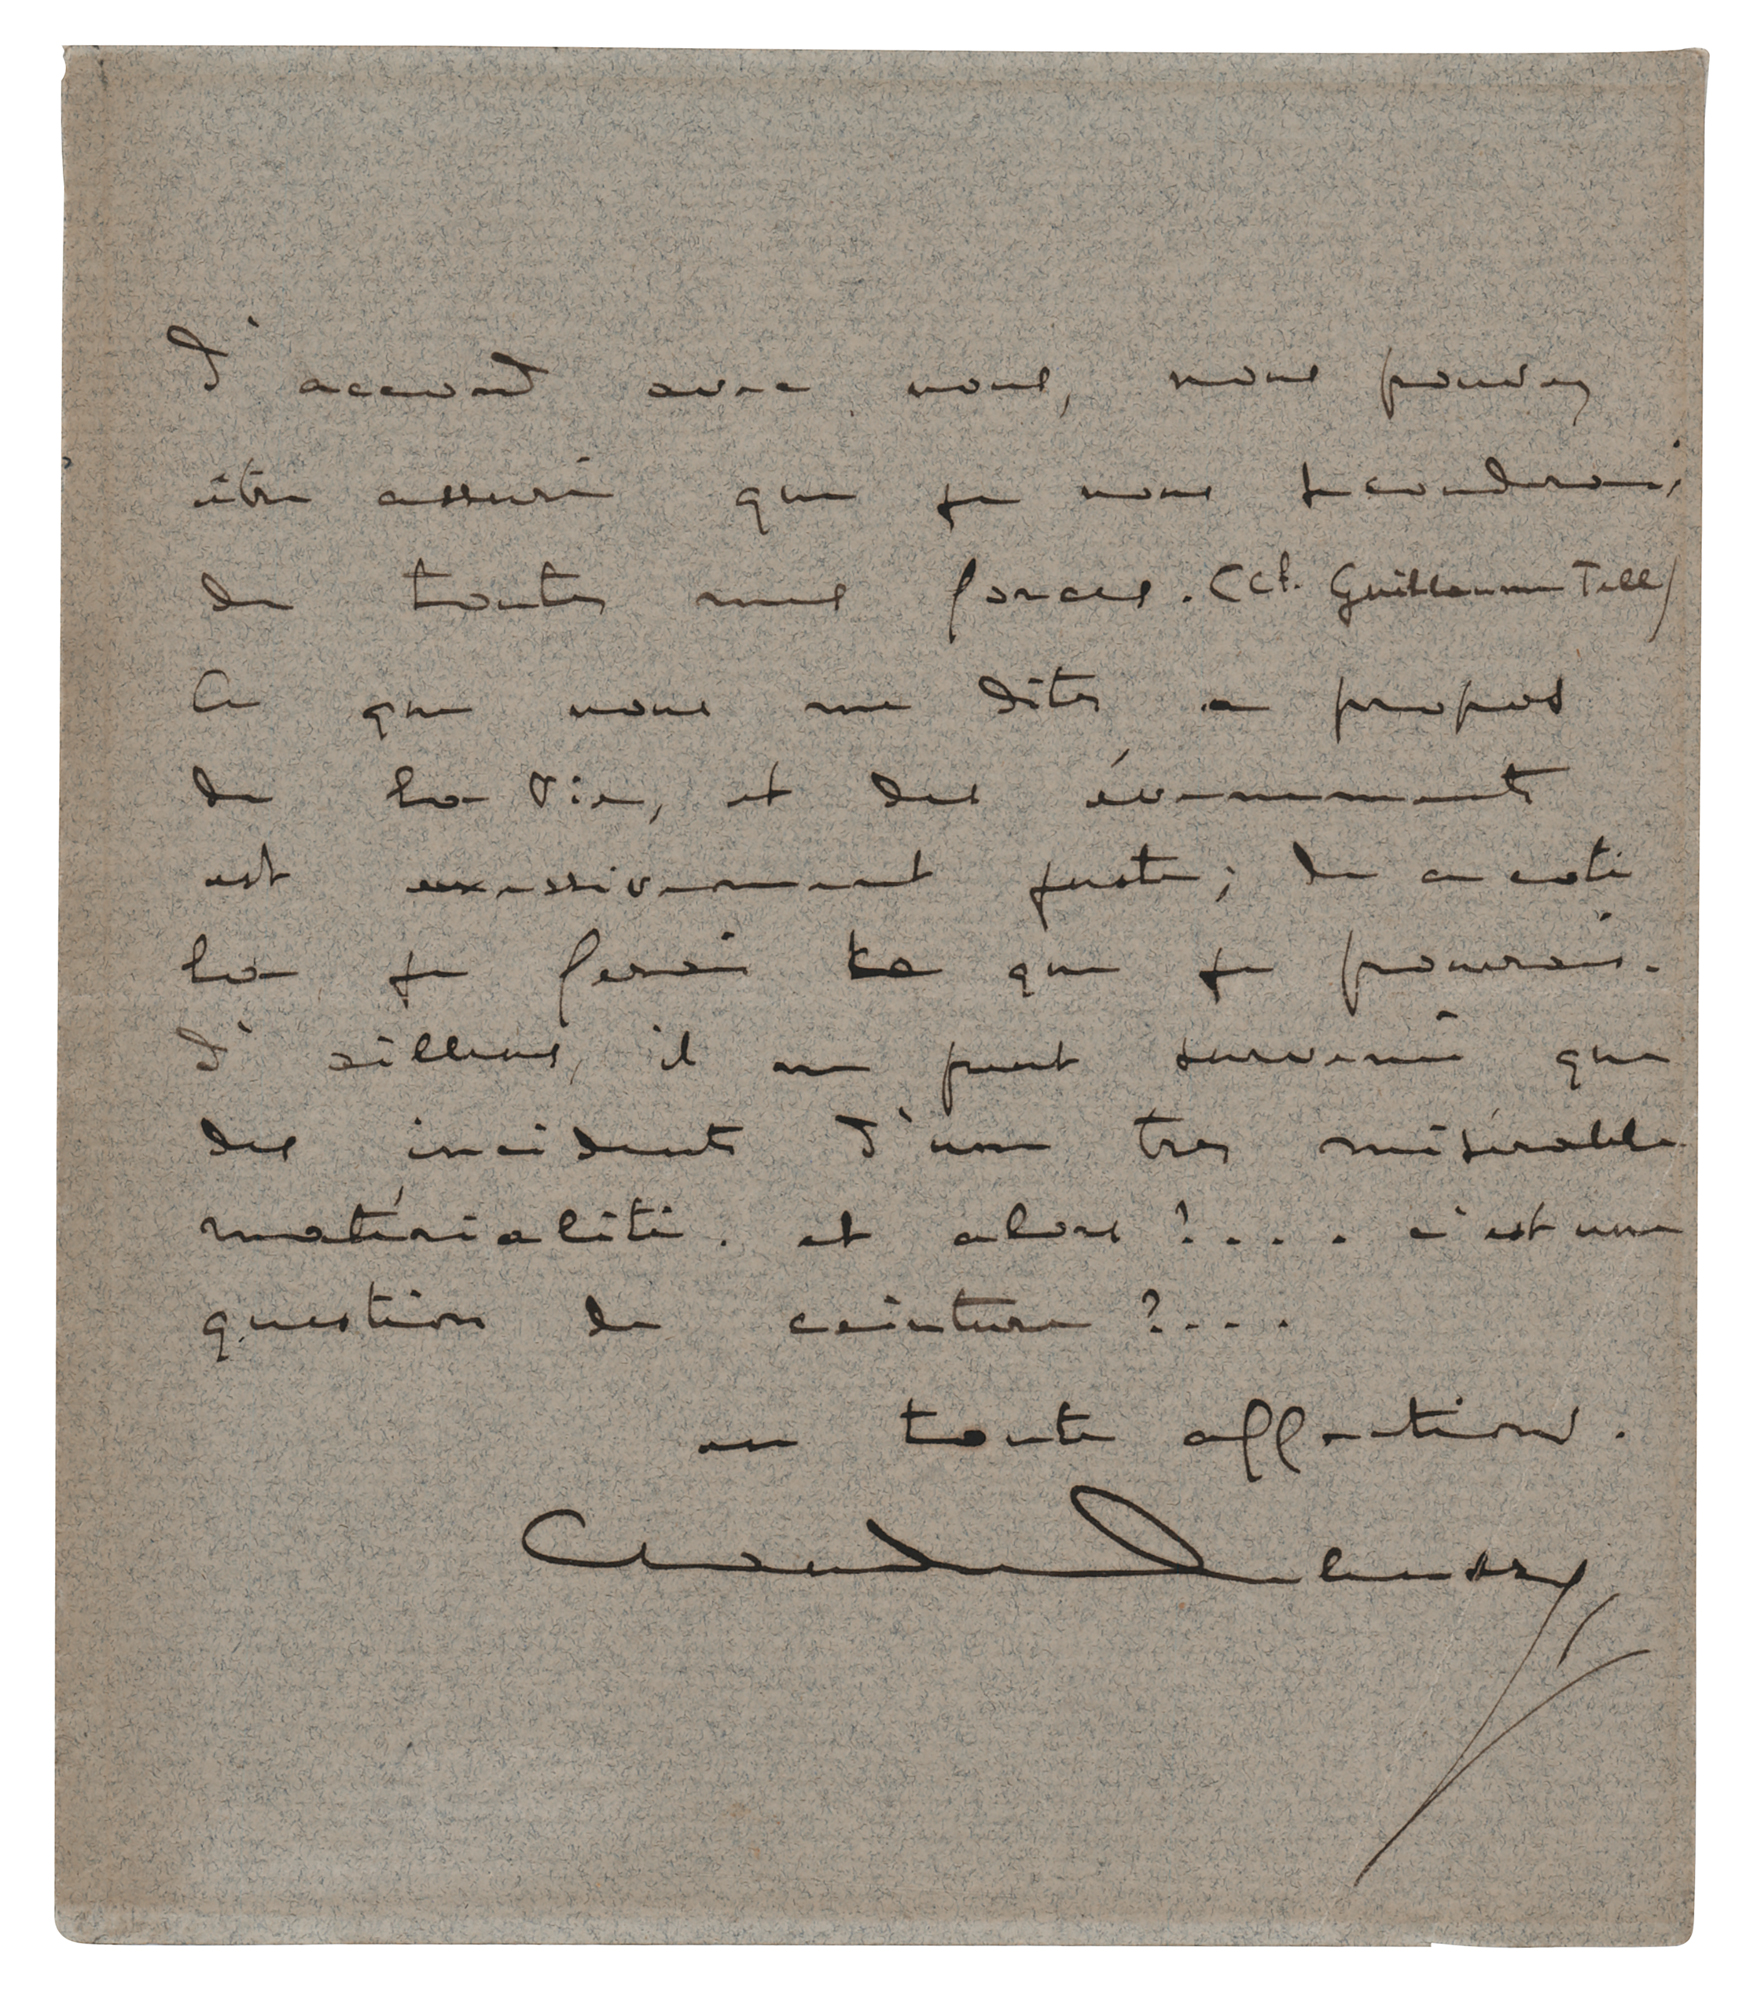 D'accord avec vous, vous pouvez
être assuré que je vous seconderai
de toutes mes forces. (Cf. Guillaume Tell)
Ce que vous me dites a propos
de la Vie, et des événements
est excessivement juste; de ce coté
la je ferai ce que je pourrai.
D'ailleurs, il ne peut survenir que
des incidents d'une tres misérable
matérialité. et alors?.... c'est une
question de ceinture?....
en toute affection.
Claude Debussy